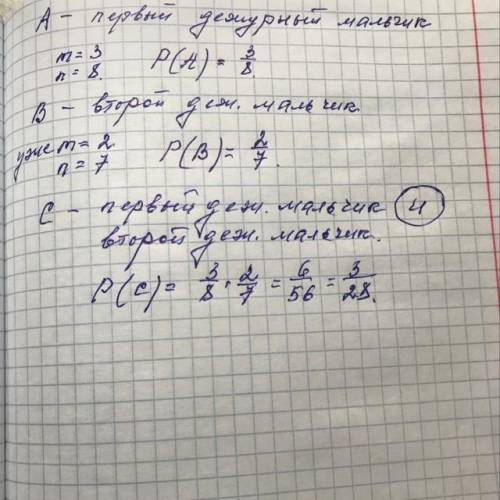 A – первый дежурный мальчик
m = 3
n = 8. P(A) = 3/8.
B – второй деж. мальчик
уже m = 2
n = 7 P(B) = 2/7.
C – первый деж. мальчик и
второй деж. мальчик.
P(C) = 3/8 · 2/7 = 6/56 = 3/28.